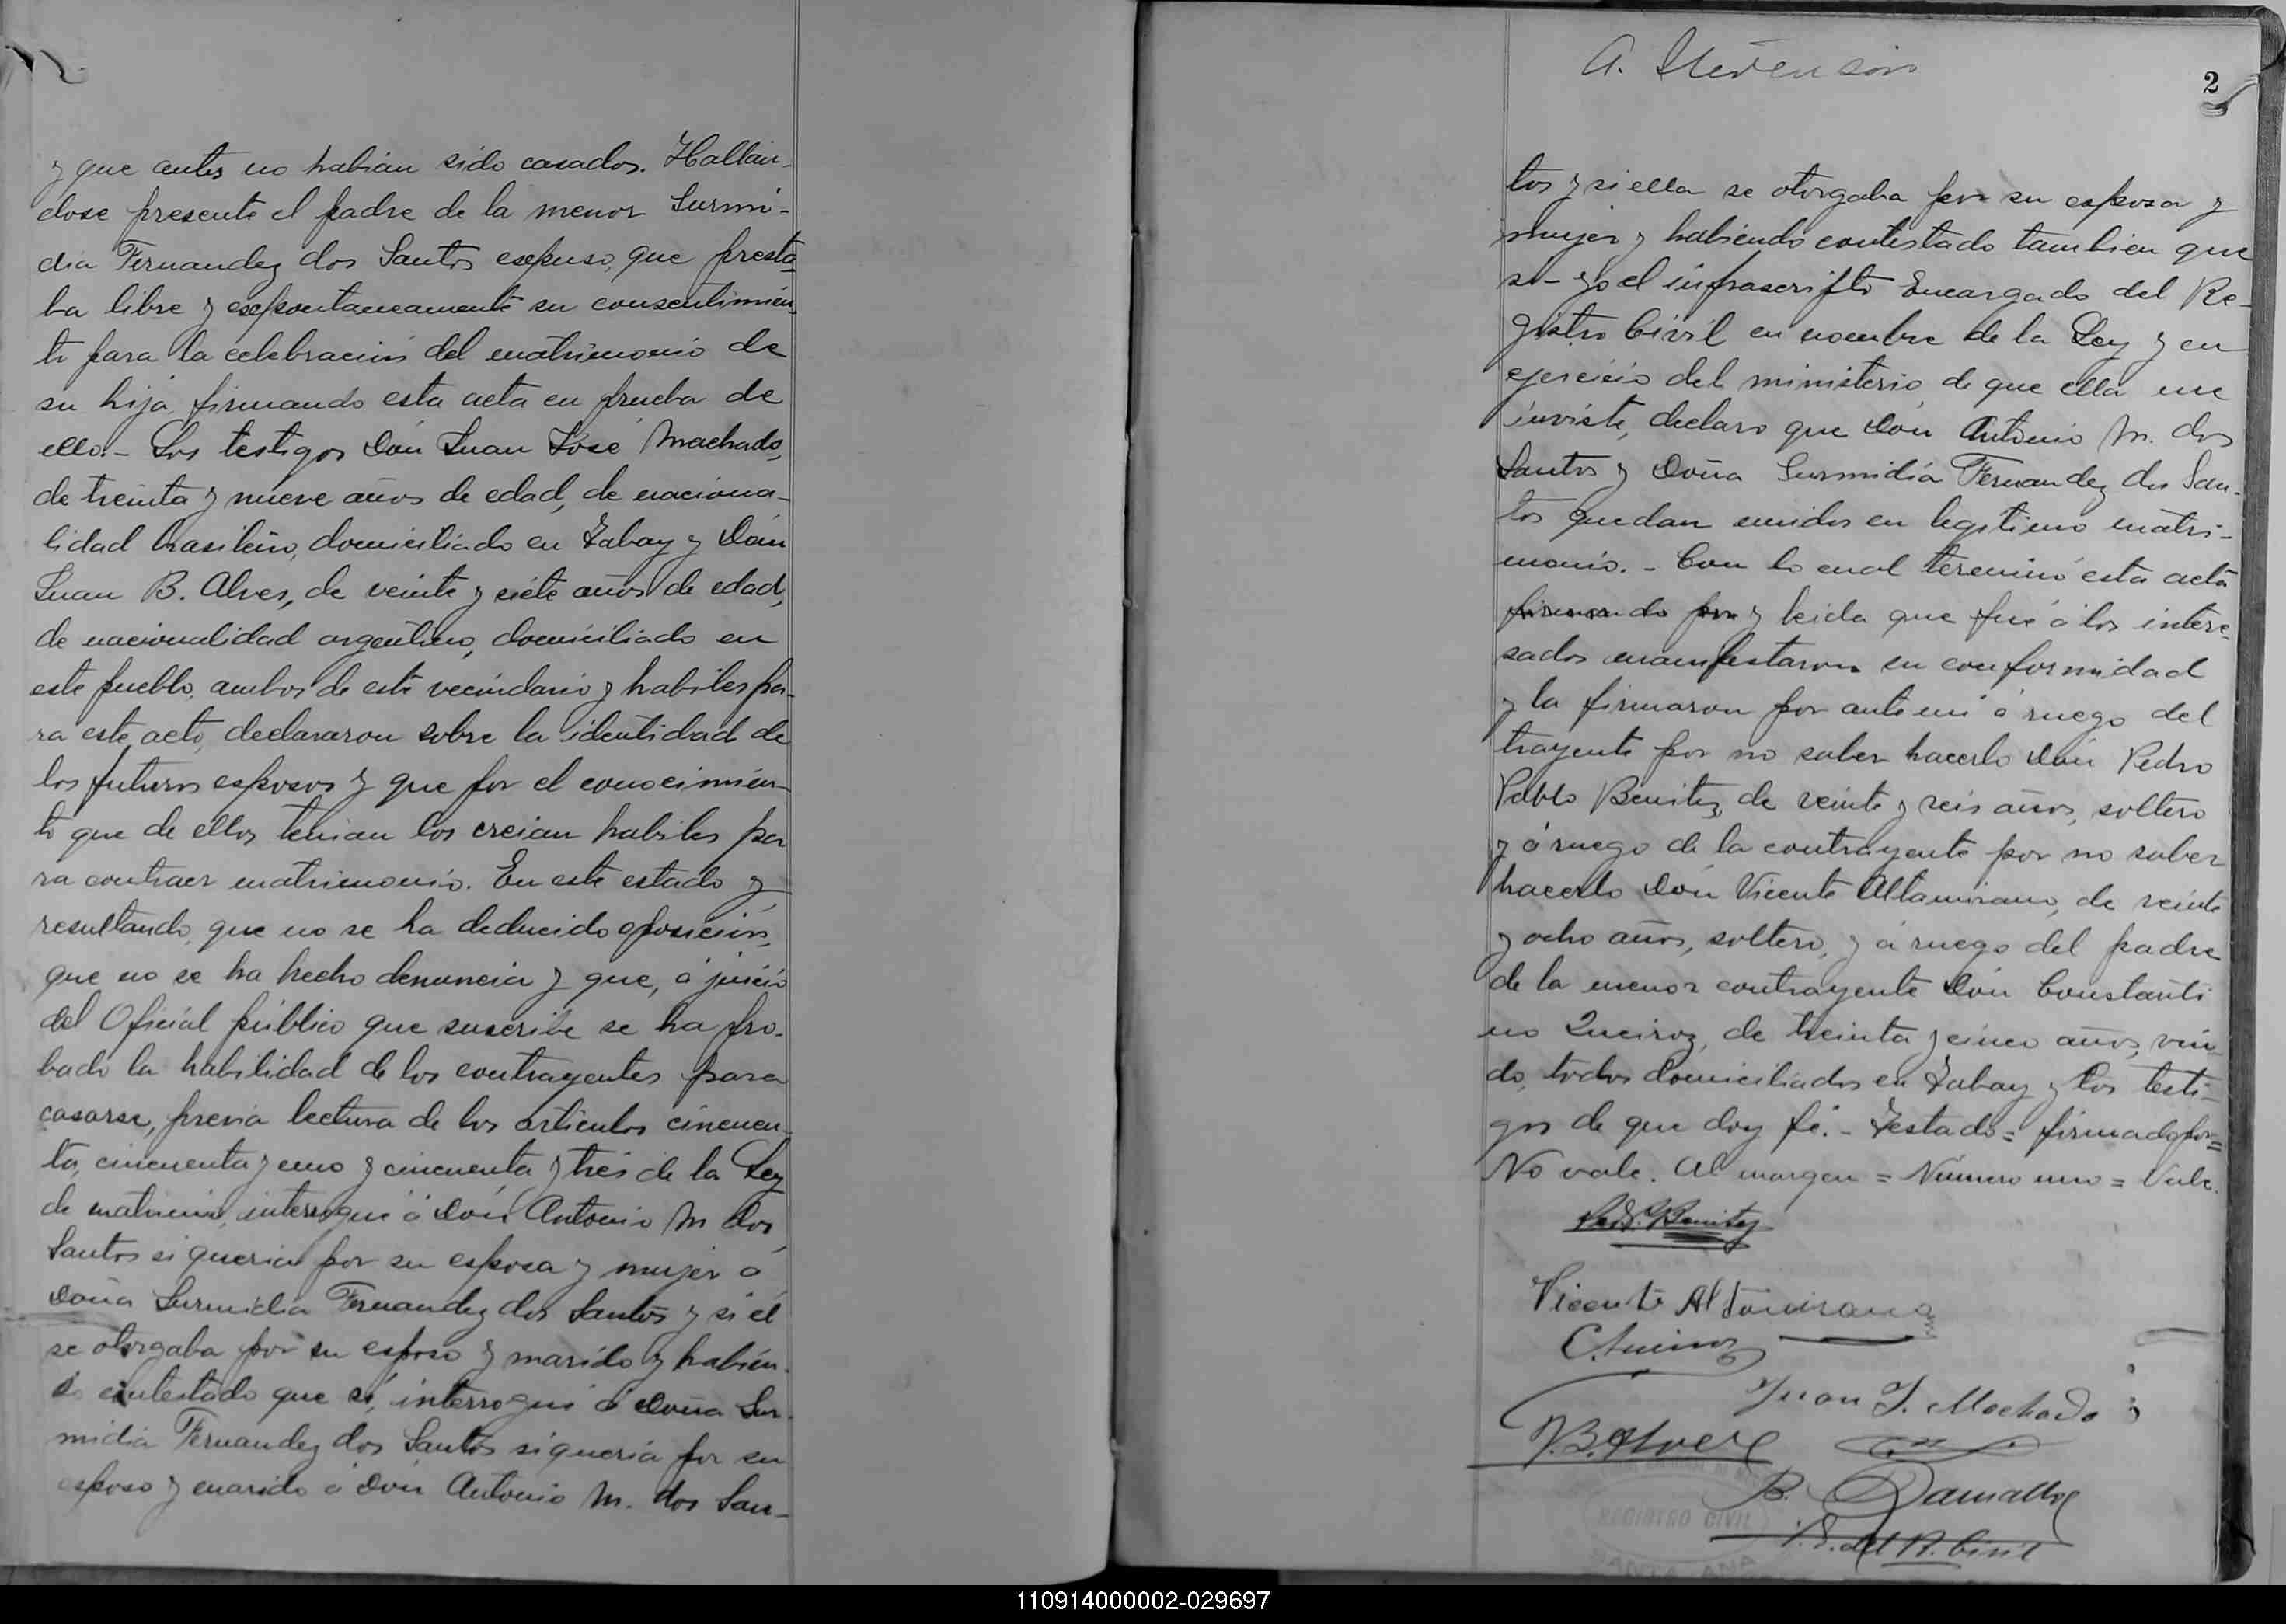 y que antes no habian sido casados. Hallan-
dose presente el padre de la menor Surmi-
dia Fernandez dos Santos espuso, que presta-
ba libre y espontaneamente su consentimien-
to para la celebracion del matrimonio de
su hija firmando esta acta en prueba de
ello. - Los testigos Don Juan José Machado,
de treinta y nueve años de edad, de naciona-
lidad brasileño, domiciliado en Yabay y Don
Juan B. Alves, de veinte y siete años de edad,
de nacionalidad argentino, domiciliado en
este pueblo, ambos de este vecindario y habiles pa-
ra este acto, declararon sobre la identidad de
los futuros esposos y que por el conocimien-
to que de ellos tenian los creian habiles pa
ra contraer matrimonio. En este estado y
resultando, que no se ha deducido oposicion,
que no se ha hecho denuncia y que, á juicio
del Oficial público que suscribe se ha pro-
bado la habilidad de los contrayentes para
casarse, previa lectura de los articulos cincuen-
ta, cincuenta y uno y cincuenta y tres de la Ley
de matrimonio, interrogué á Don Antonio M dos
Santos si queria por su esposa y mujer á
Doña Surmidia Fernandez dos Santos y si él
se otorgaba por su esposo y marido y habien-
do contestado que sí, interrogué á Doña Sur
midia Fernandez dos Santos si queria por su
esposo y marido á Don Antonio M. dos San-
A. Stevenson
2
tos y si ella se otorgaba por su esposa y
mujer y habiendo contestado tambien que
si - yo el infrascripto Encargado del Re-
gistro Civil en nombre de la Ley y en
ejercicio del ministerio de que ella me
inviste, declaro que Don Antonio M. dos
Santos y Doña Surmidia Fernandez dos San-
tos quedan unidos en legitimo matri-
monio. - Con lo cual terminó esta acta
firmando por y leida que fué á los intere-
sados manifestaron su conformidad
y la firmaron por ante mi á ruego del
trayente por no saber hacerlo Don Pedro
Pablo Benitez, de veinte y seis años, soltero
y á ruego de la contrayente por no saber
hacerlo Don Vicente Altamirano, de veinte
y ocho años, soltero, y á ruego del padre
de la menor contrayente Don Constanti
no Queiroz, de treinta y cinco años, viu
do, todos domiciliados en Yabay y los testi-
gos de que doy fé. - Testado = firmado por =
No vale. Al margen = Número uno = Vale.
Benitez
Vicente Altamirano
C. Queiroz
Juan J. Machado
J. B. Alves
B. Damallo
REGISTRO CIVIL
SANTA ANA
del R. Civil
110914000002-029697